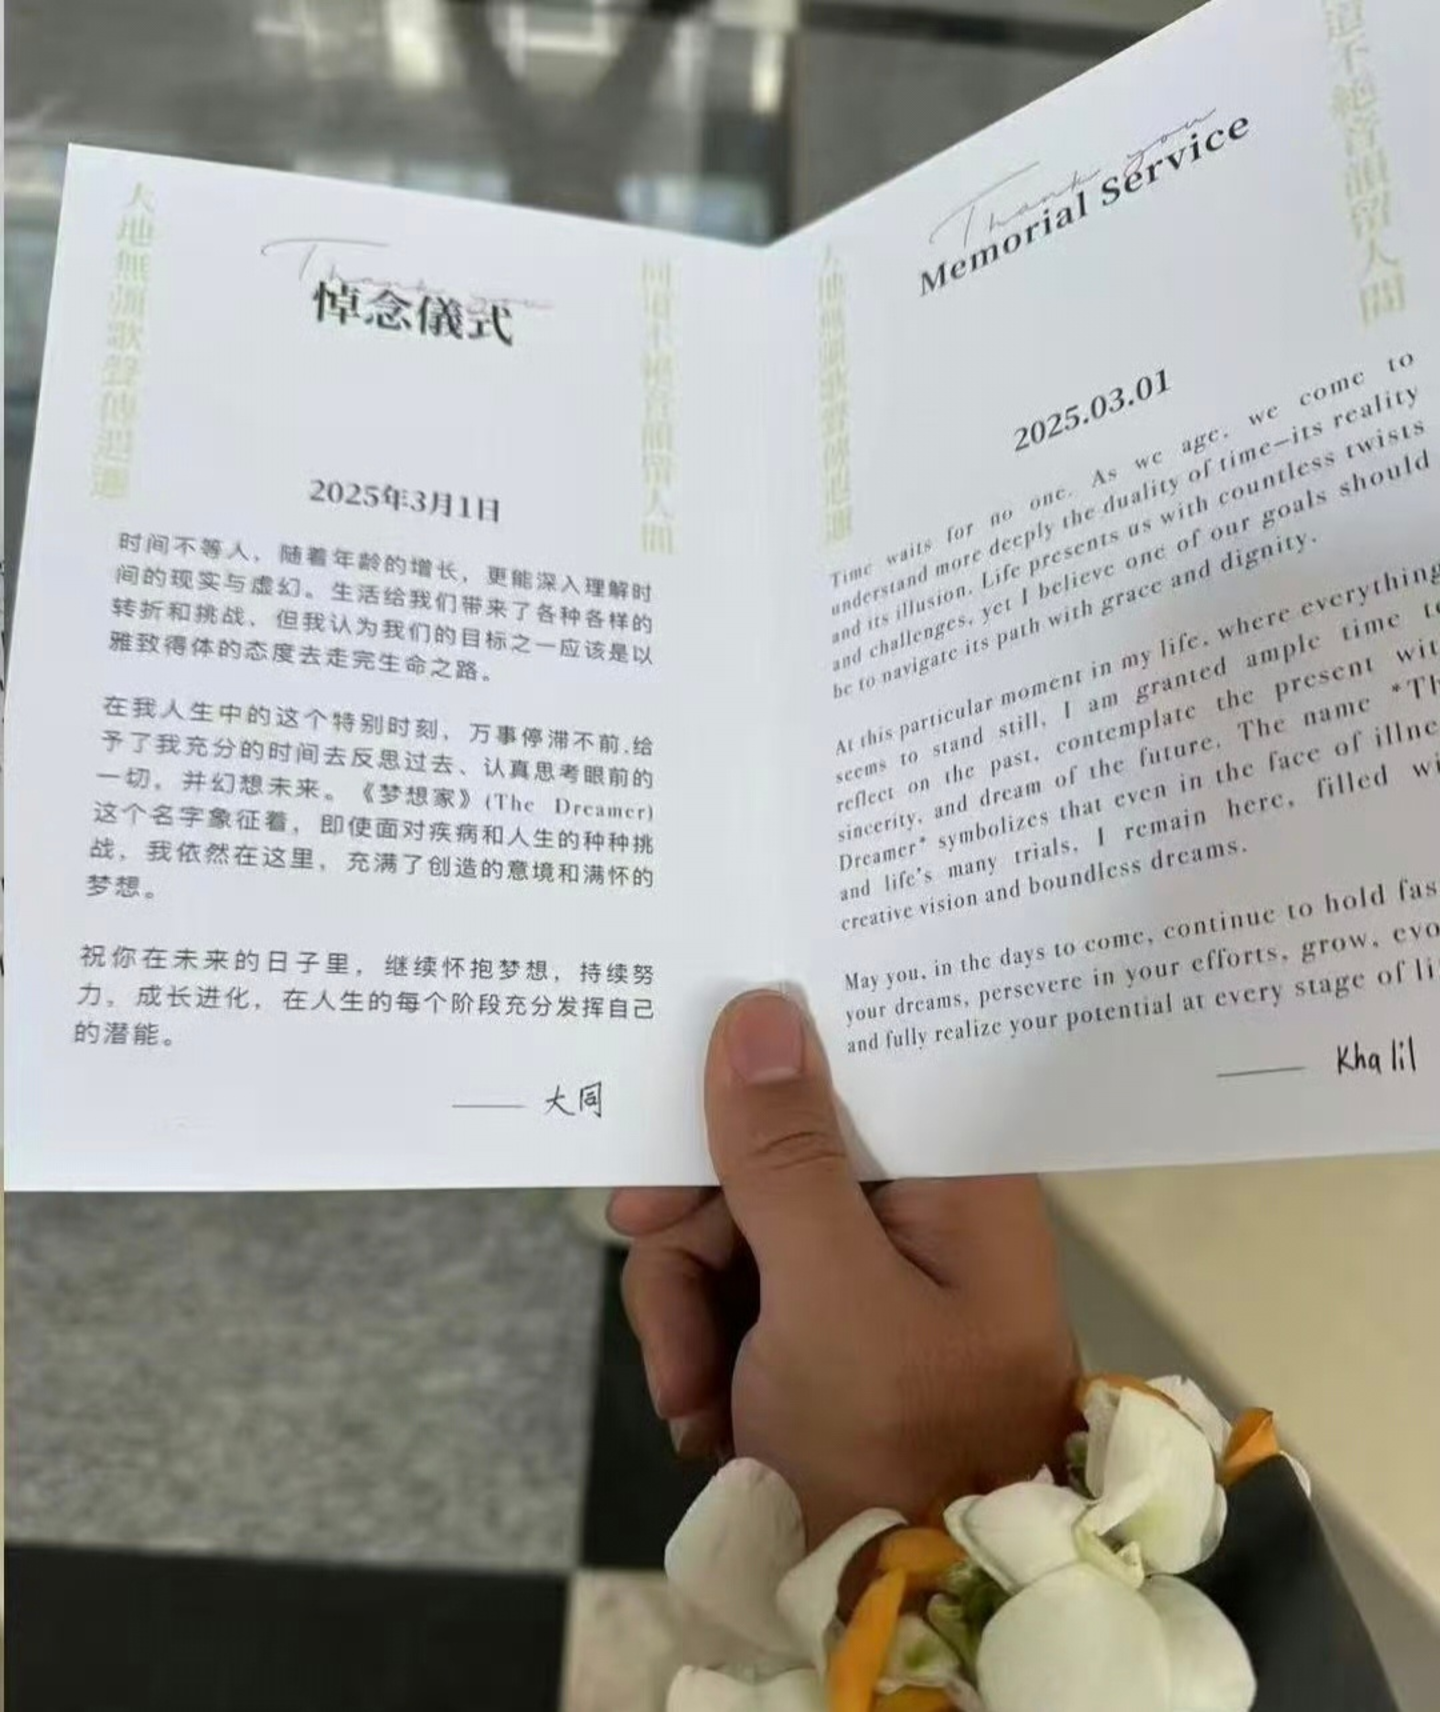 大地無疆歌聲傳迴邐
Thank you
悼念儀式
同道不絕音韻留人間
2025年3月1日
时间不等人，随着年龄的增长，更能深入理解时
间的现实与虚幻。生活给我们带来了各种各样的
转折和挑战，但我认为我们的目标之一应该是以
雅致得体的态度去走完生命之路。
在我人生中的这个特别时刻，万事停滞不前,给
予了我充分的时间去反思过去、认真思考眼前的
一切，并幻想未来。《梦想家》(The Dreamer)
这个名字象征着，即使面对疾病和人生的种种挑
战，我依然在这里，充满了创造的意境和满怀的
梦想。
祝你在未来的日子里，继续怀抱梦想，持续努
力，成长进化，在人生的每个阶段充分发挥自己
的潜能。
—— 大同
大地無疆歌聲傳迴邐
Thank you
Memorial Service
道不絕音韻留人間
2025.03.01
Time waits for no one. As we age, we come to
understand more deeply the duality of time—its reality
and its illusion. Life presents us with countless twists
and challenges, yet I believe one of our goals should
be to navigate its path with grace and dignity.
At this particular moment in my life, where everything
seems to stand still, I am granted ample time
reflect on the past, contemplate the present
sincerity, and dream of the future. The name
Dreamer* symbolizes that even in the face of
and life's many trials, I remain here, filled
creative vision and boundless dreams.
May you, in the days to come, continue to hold
your dreams, persevere in your efforts, grow,
and fully realize your potential at every stage of
—— Khalil